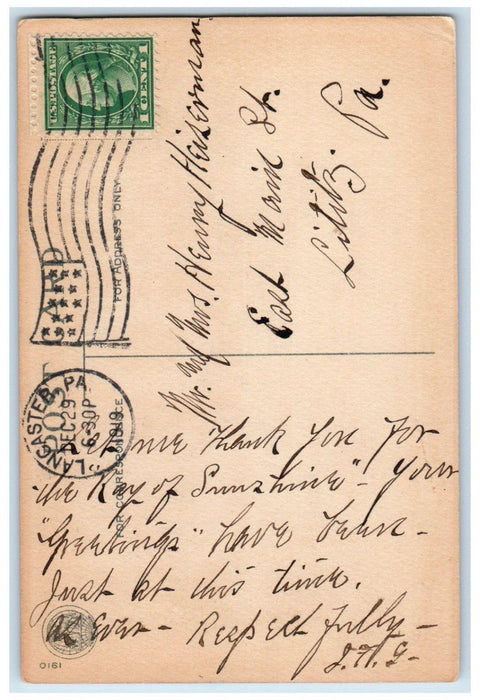 U.S. POSTAGE
1 CENT 1
POST CARD
LANCASTER, PA.
DEC 29
6-30P
1919
FOR ADDRESS ONLY
Mr. and Mrs. Henry Heiserman
East Main St.
Lititz. Pa.
FOR CORRESPONDENCE
Let me Thank You For
the Ray of Sunshine" – Your
"Greetings" have been –
Just at this time.
As Ever – Respectfully –
0161